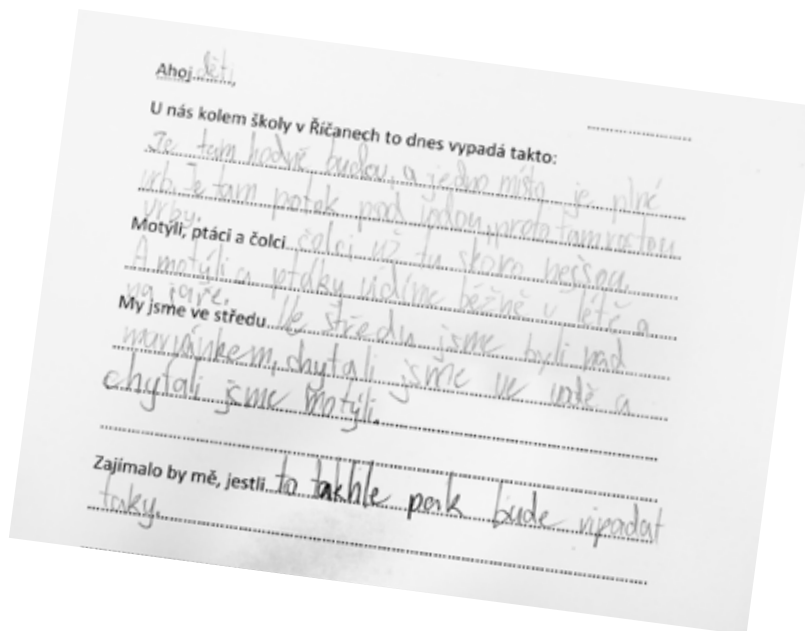 Ahoj děti,
U nás kolem školy v Říčanech to dnes vypadá takto:
Je tam hodně budov, a jedno místo je plné
vrb. Je tam potok pod vodou, proto tam rostou
vrby.
Motýli, ptáci a čolci čolci už tu skoro nejsou.
A motýli a ptáky vidíme běžně v létě a
na jaře.
My jsme ve středu Ve středu jsme byli nad
marjánkem, chytali jsme ve vodě a
chytali jsme motýli.
Zajímalo by mě, jestli to takhle pak bude vipadat
taky.